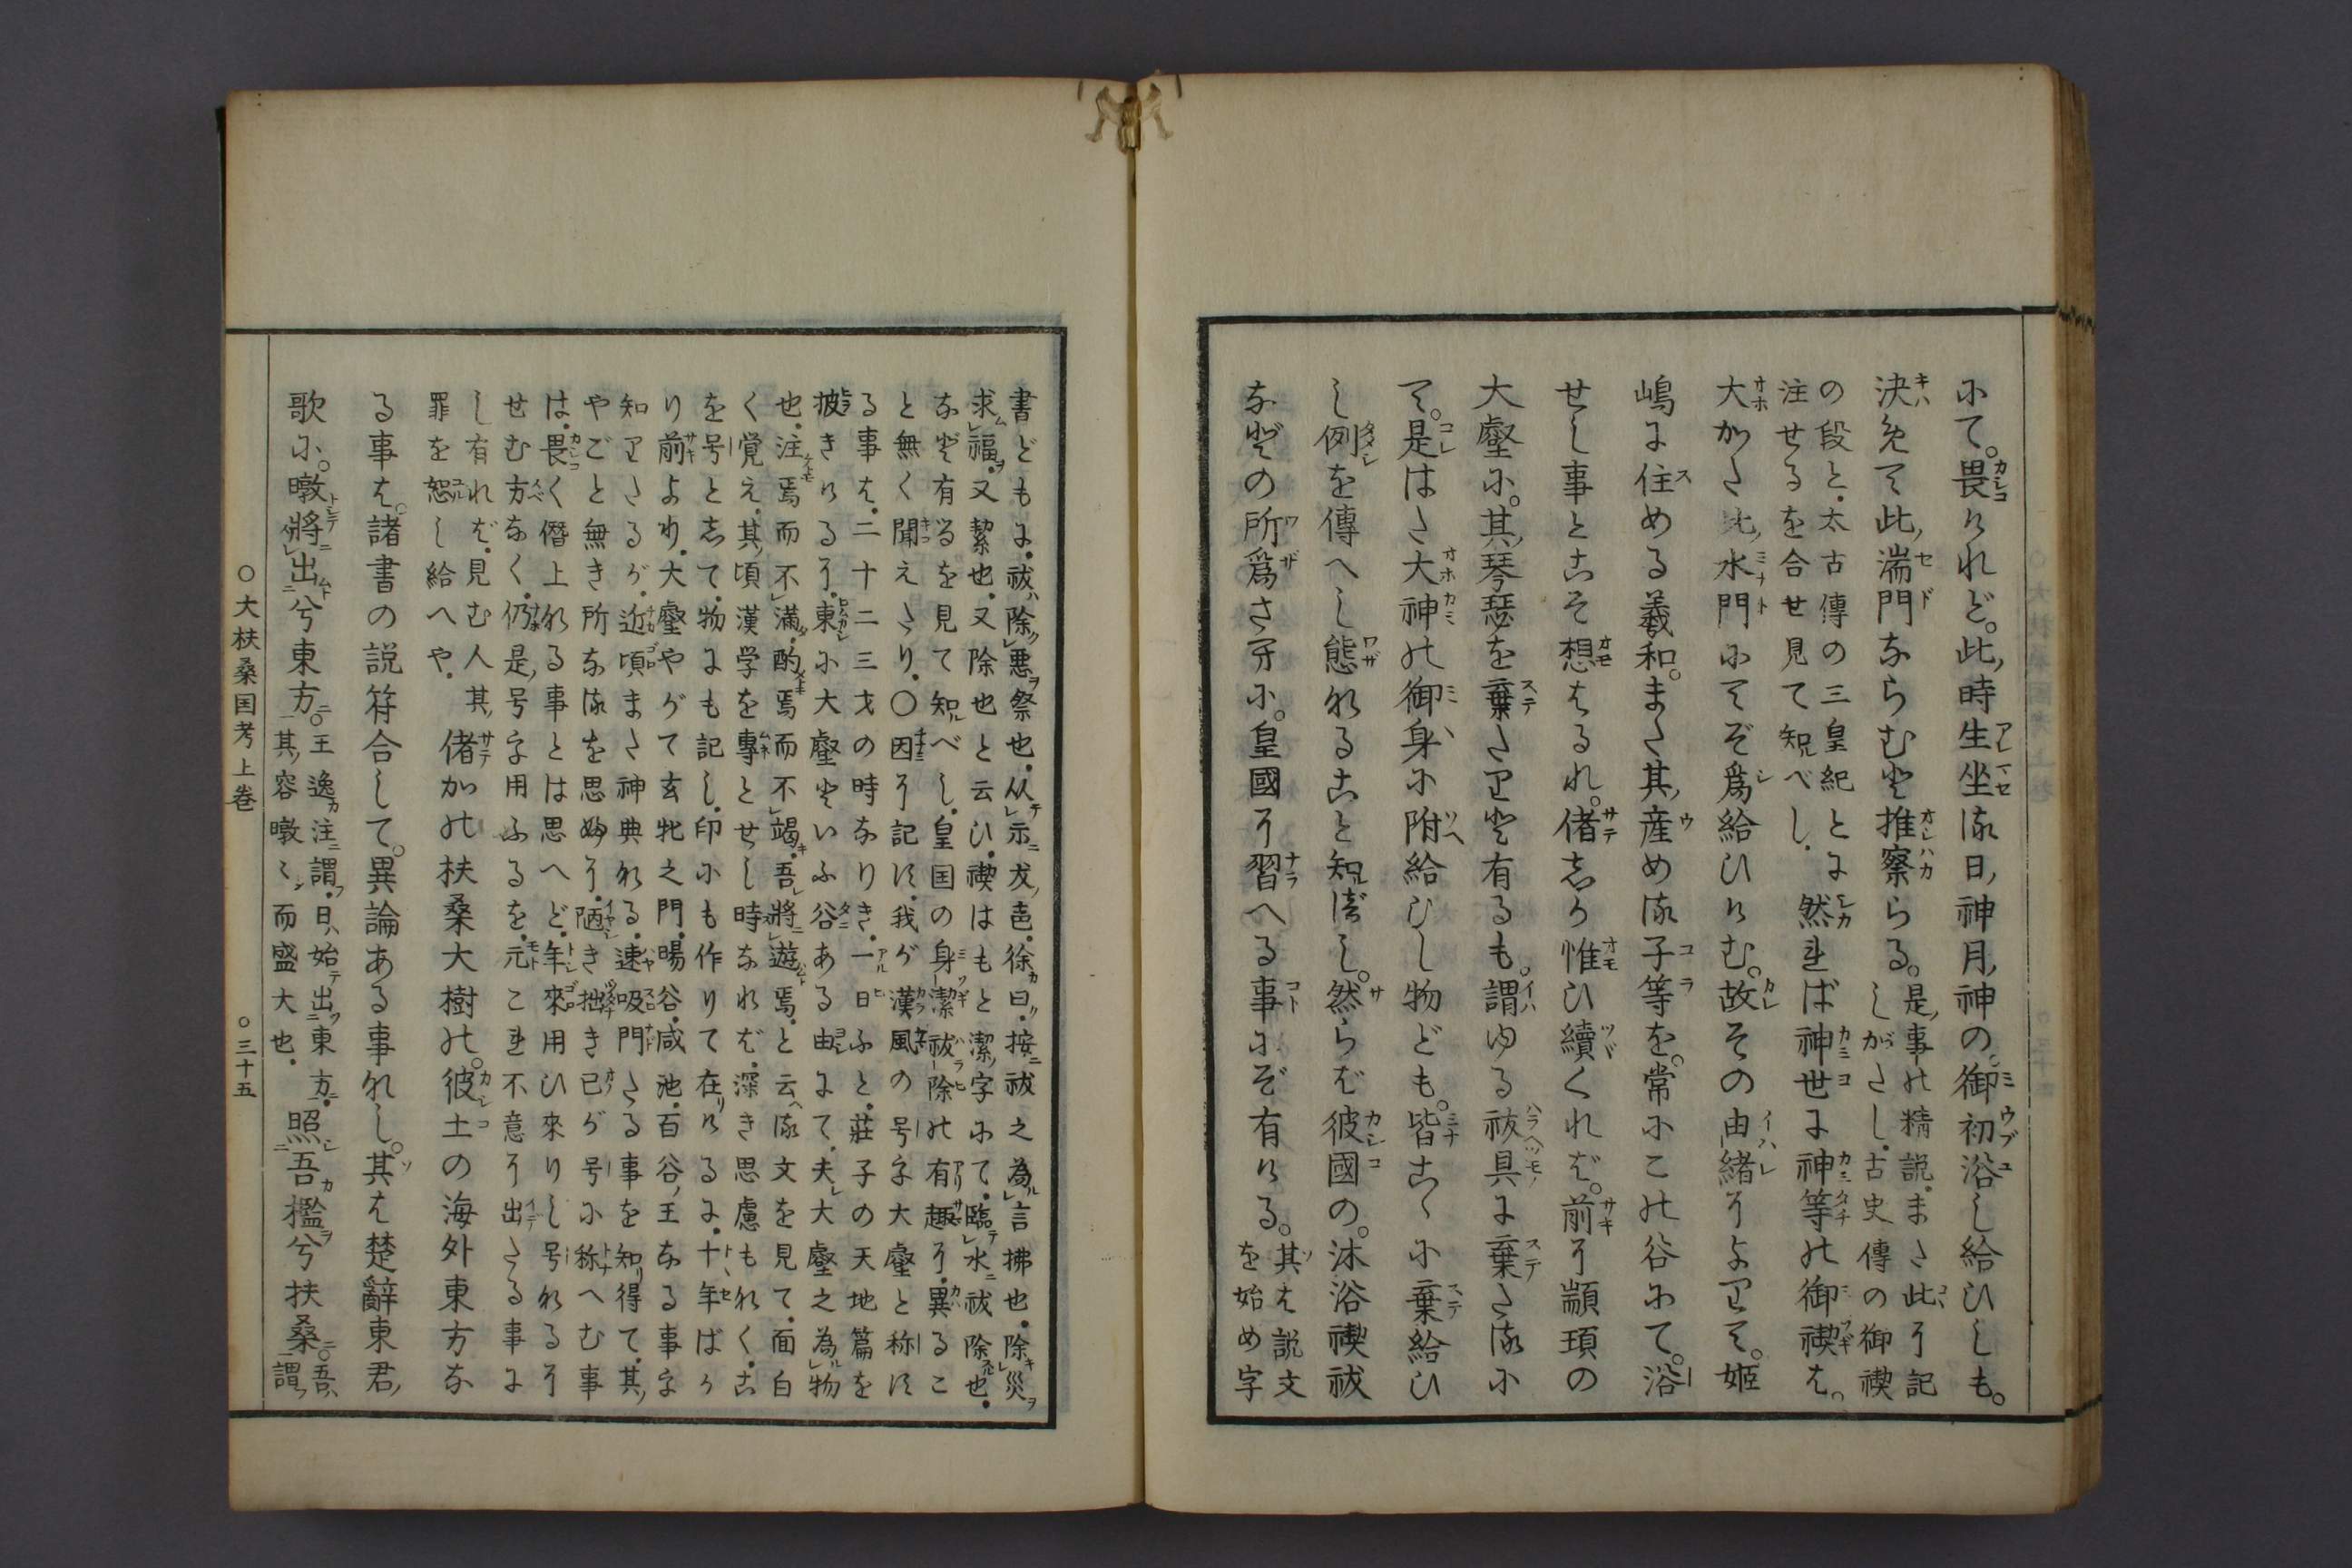 にて。畏けれど。此時生坐る日神月神の。御初浴し給ひしも。
決めて此湍門ならむと推察らる。是事の精説。また此に記
しがたし。古史傳の御禊
の段と。太古傳の三皇紀とに
注せるを合せ見て知べし。然れば神世に神等の御禊は。
大かた此水門にてぞ爲給ひけむ。故その由緒によりて。姫
嶋に住める羲和。また其産める子等を。常にこの谷にて。浴
せし事とこそ想はるれ。偖しか惟ひ續くれば。前に顓頊の
大壑に。其琴瑟を棄たりと有るも。謂ゆる祓具に棄たるに
て。是はた大神の御身に附給ひし物ども。皆こゝに棄給ひ
し例を傳へし態なること知べし。然らば彼國の。沐浴禊祓
などの所爲さへに。皇國に習へる事にぞ有ける。其は説文
を始め字
書どもに。祓除悪祭也。从示犮声。徐曰。按祓之為言拂也。除災
求福。又潔也。又除也と云ひ。禊はもと潔字にて。臨水祓除也。
など有るを見て知べし。皇国の身潔祓除の有趣に。異るこ
と無く聞えたり。〇因に記す。我が漢風の号字大壑と称す
る事は。二十二三才の時なりき。一日ふと。莊子の天地篇を
披きけるに。東に大壑といふ谷ある由にて。夫大壑之為物
也。注焉而不満。酌焉而不竭。吾將遊焉。と云る文を見て。面白
く覚え。其頃漢学を專とせし時なれば。深き思慮もなく。こ
を号として。物にも記し。印にも作りて在けるに。十年ばか
り前より。大壑やがて玄牝之門。暘谷。咸池。百谷王なる事を
知りたるが。近頃また神典なる。速吸門たる事を知得て。其
やごと無き所なるを思ふに。陋き拙き己が号に称へむ事
は。畏く僭上なる事とは思へど。年來用ひ來りし号なるに
せむ方なく。仍是号を用ふるを。元これ不意に出たる事に
し有れば。見む人其
罪を恕し給へや。偖かの扶桑大樹の。彼土の海外東方な
る事は。諸書の説符合して。異論ある事なし。其は楚辭東君
歌に。暾將出兮東方。王逸注謂。日始出東方。
其容暾〻而盛大也。照吾檻兮扶桑。吾
謂
〇大扶桑国考上巻 〇三十五